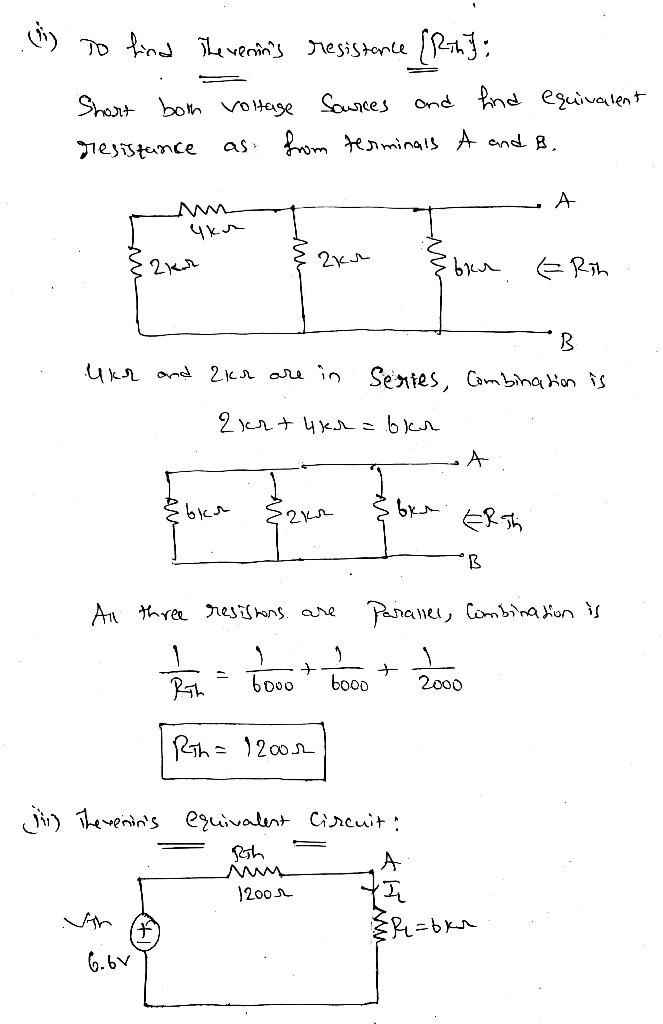 (ii) To find Thevenin's resistance [RTh]:
Short both voltage Sources and find equivalent
resistance as from terminals A and B.
A
4kΩ
2kΩ
2kΩ
6kΩ
⇐ RTh
B
4kΩ and 2kΩ are in Series, Combination is
2kΩ + 4kΩ = 6kΩ
A
6kΩ
2kΩ
6kΩ
⇐ RTh
B
All three resistors are Parallel, Combination is
1/RTh = 1/6000 + 1/6000 + 1/2000
RTh = 1200Ω
iii) Thevenin's equivalent Circuit:
RTh
A
1200Ω
IL
VTh
+
RL=6kΩ
6.6V